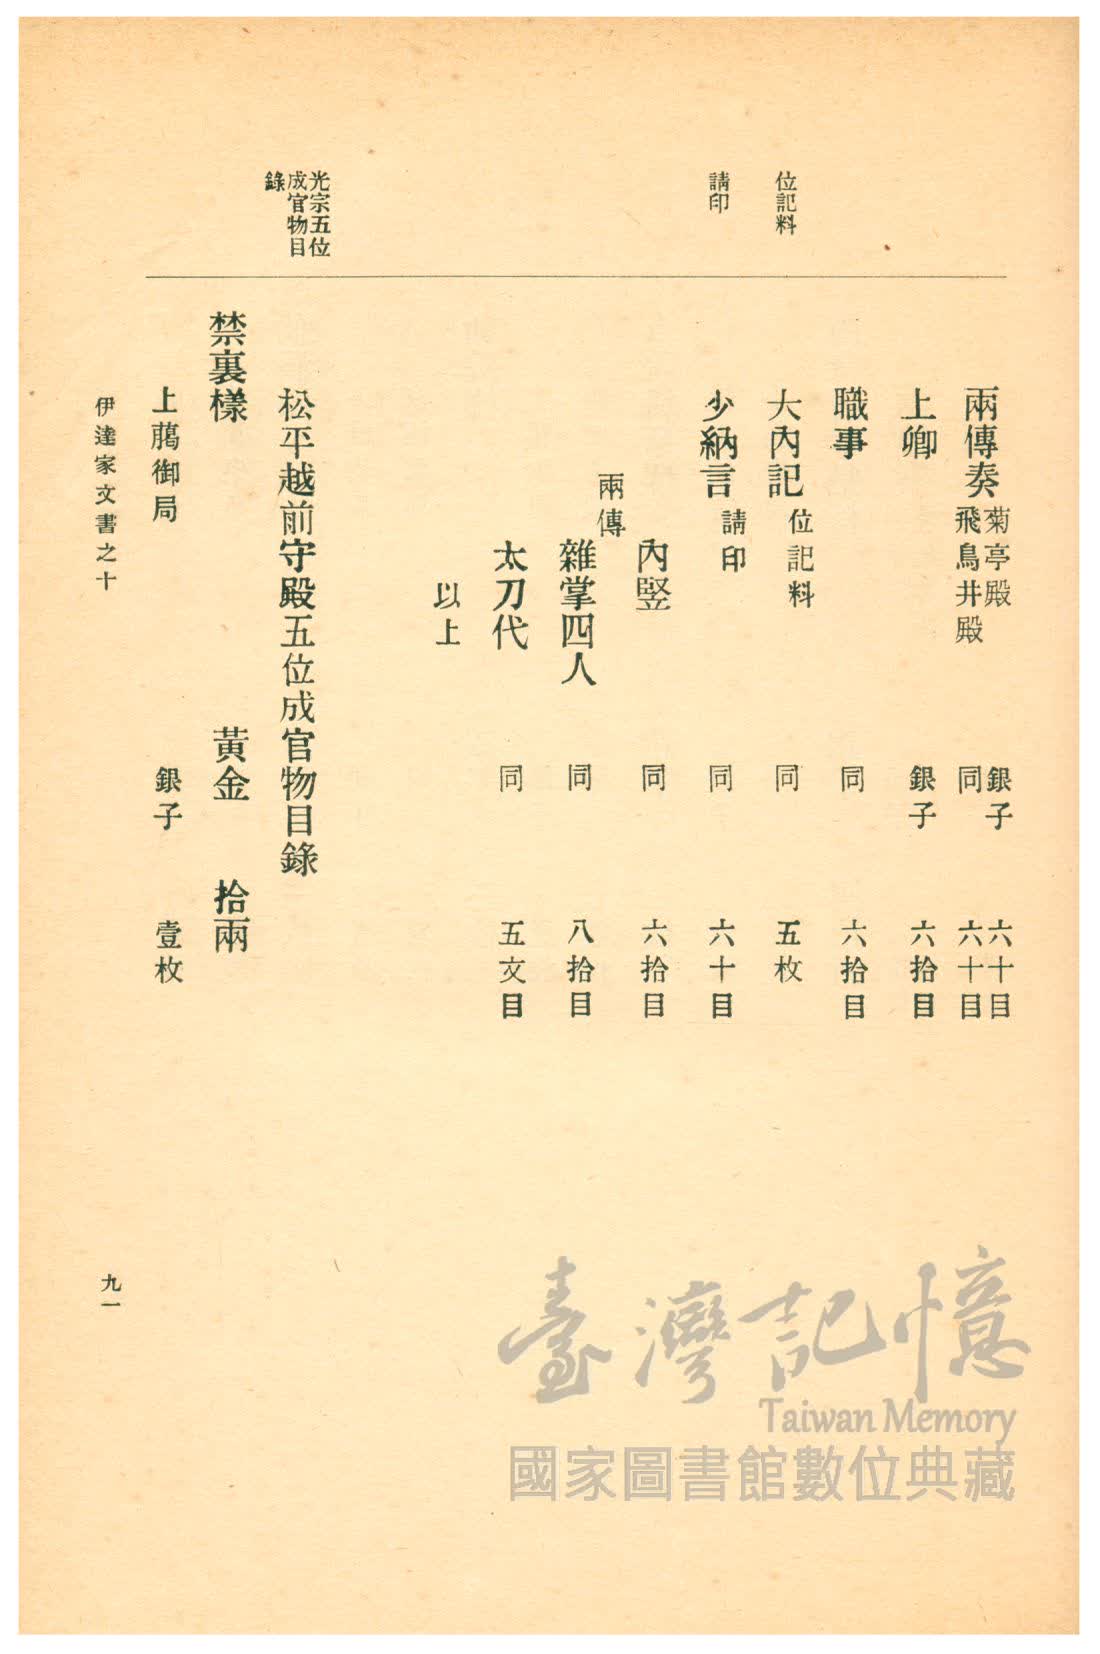 位記料
請印
光宗五位
成官物目
錄
兩傳奏 菊亭殿 銀子 六十目
飛鳥井殿 同 六十目
上卿 銀子 六拾目
職事 同 六拾目
大內記 位記料 同 五枚
少納言 請印 同 六十目
內竪 同 六拾目
兩傳
雜掌四人 同 八拾目
太刀代 同 五文目
以上
松平越前守殿五位成官物目錄
禁裏樣 黃金 拾兩
上﨟御局 銀子 壹枚
伊達家文書之十
九一
臺灣記憶
Taiwan Memory
國家圖書館數位典藏